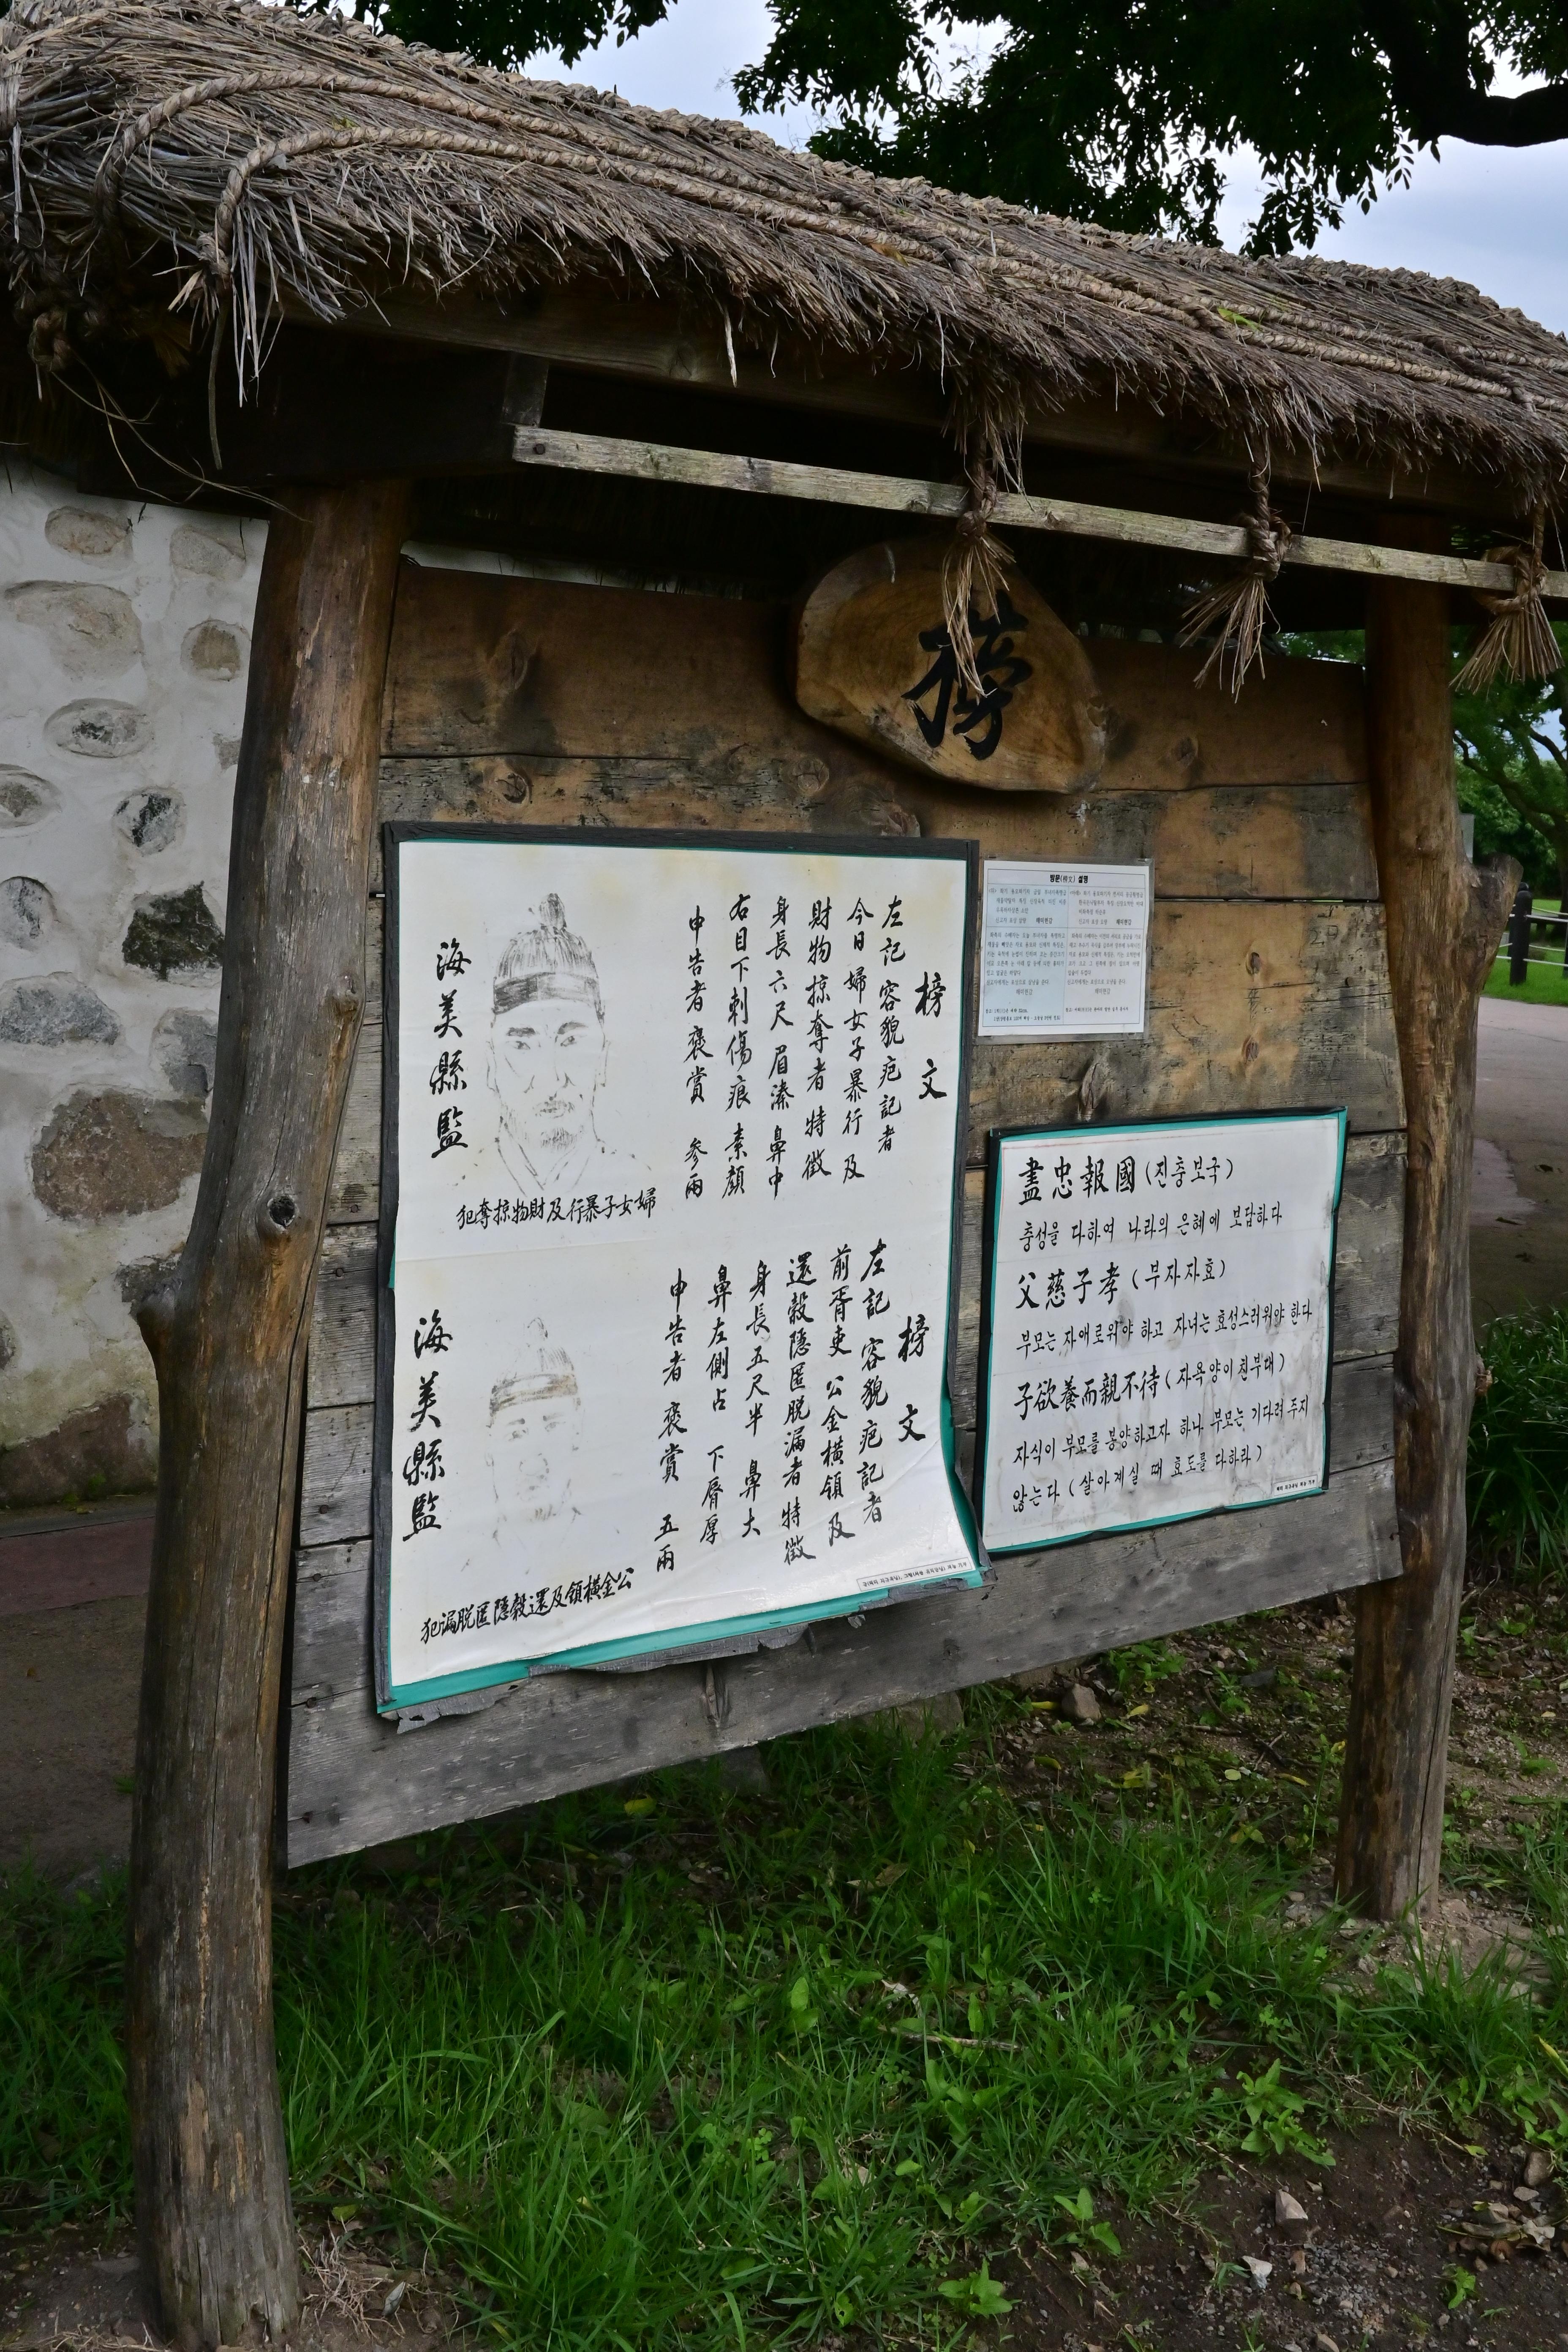 榜
榜文
左記 容貌疤記者
今日 婦女子暴行及
財物掠奪者 特徵
身長六尺 眉漆 鼻中
右目下刺傷痕 素顔
申告者 褒賞 參兩
海美縣監
犯奪掠物財及行暴子女婦
榜文
左記 容貌疤記者
前胥吏 公金橫領及
還穀隱匿脫漏者 特徵
身長五尺半 鼻大
鼻左側占 下脣厚
申告者 褒賞 五兩
海美縣監
犯漏脫匿隱穀還及領橫金公
방문(榜文) 설명
해미현감
해미현감
해미현감
해미현감
盡忠報國 (진충보국)
충성을 다하여 나라의 은혜에 보답하다
父慈子孝 (부자자효)
부모는 자애로워야 하고 자녀는 효성스러워야 한다
子欲養而親不待 (자욕양이친부대)
자식이 부모를 봉양하고자 하나 부모는 기다려 주지
않는다 (살아계실 때 효도를 다하라)